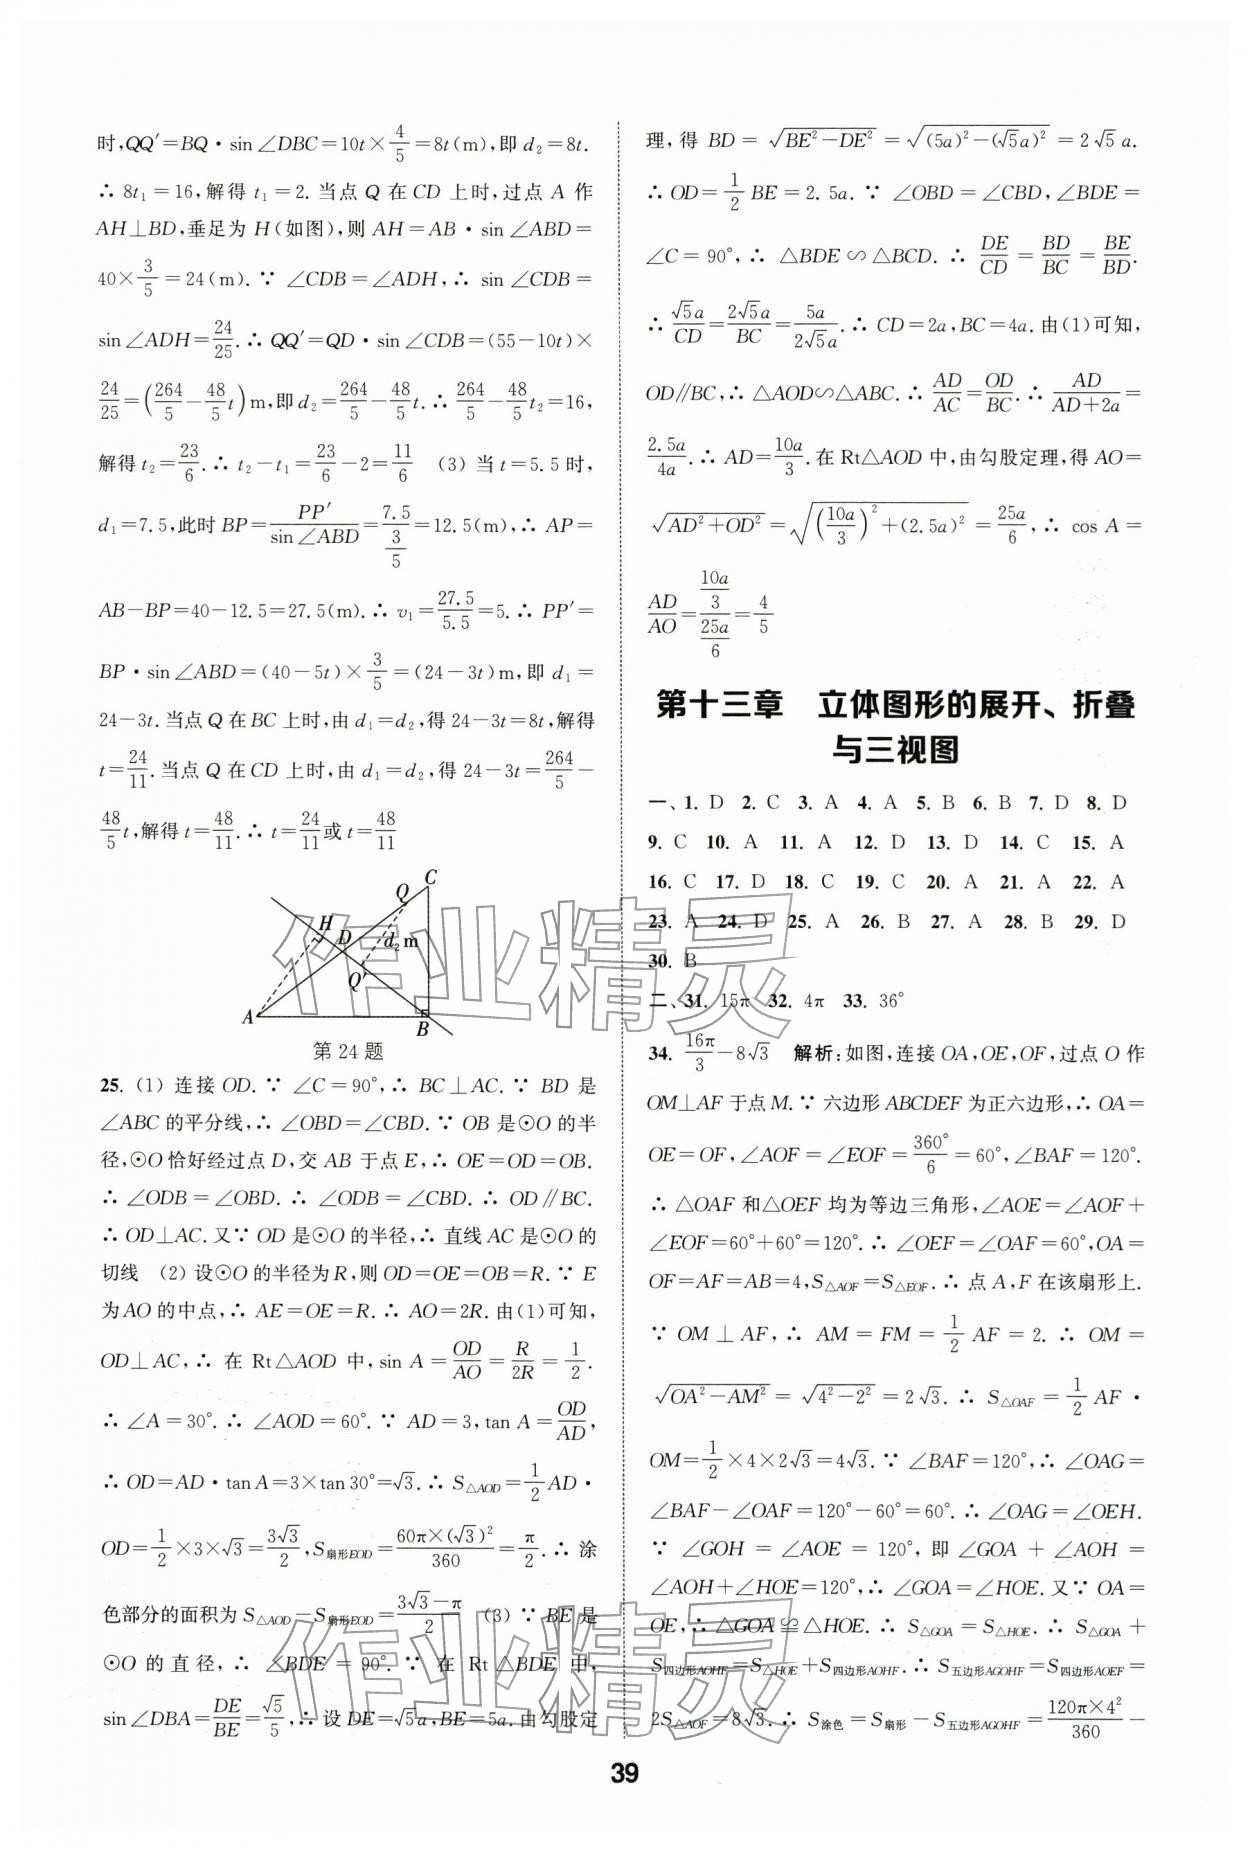 时,QQ′=BQ·sin∠DBC=10t×4/5=8t(m),即 d₂=8t.
∴ 8t₁=16,解得 t₁=2. 当点 Q 在 CD 上时,过点 A 作
AH⊥BD,垂足为 H(如图),则 AH=AB·sin∠ABD=
40×3/5=24(m). ∵ ∠CDB=∠ADH,∴ sin∠CDB=
sin∠ADH=24/25. ∴ QQ′=QD·sin∠CDB=(55-10t)×
24/25=(264/5-48/5t)m,即 d₂=264/5-48/5t. ∴ 264/5-48/5t₂=16,
解得 t₂=23/6. ∴ t₂-t₁=23/6-2=11/6 (3) 当 t=5.5 时,
d₁=7.5,此时 BP=PP′/sin∠ABD=7.5/(3/5)=12.5(m),∴ AP=
AB-BP=40-12.5=27.5(m). ∴ v₁=27.5/5.5=5. ∴ PP′=
BP·sin∠ABD=(40-5t)×3/5=(24-3t)m,即 d₁=
24-3t. 当点 Q 在 BC 上时,由 d₁=d₂,得 24-3t=8t,解得
t=24/11. 当点 Q 在 CD 上时,由 d₁=d₂,得 24-3t=264/5-
48/5t,解得 t=48/11. ∴ t=24/11或 t=48/11
C
Q
H
D
d₂ m
Q′
A
B
第 24 题
25. (1) 连接 OD. ∵ ∠C=90°,∴ BC⊥AC. ∵ BD 是
∠ABC 的平分线,∴ ∠OBD=∠CBD. ∵ OB 是⊙O 的半
径,⊙O 恰好经过点 D,交 AB 于点 E,∴ OE=OD=OB.
∴ ∠ODB=∠OBD. ∴ ∠ODB=∠CBD. ∴ OD∥BC.
∴ OD⊥AC. 又∵ OD 是⊙O 的半径,∴ 直线 AC 是⊙O 的
切线 (2) 设⊙O 的半径为 R,则 OD=OE=OB=R. ∵ E
为 AO 的中点,∴ AE=OE=R. ∴ AO=2R. 由(1)可知,
OD⊥AC,∴ 在 Rt△AOD 中,sin A=OD/AO=R/2R=1/2.
∴ ∠A=30°. ∴ ∠AOD=60°. ∵ AD=3,tan A=OD/AD,
∴ OD=AD·tan A=3×tan 30°=√3. ∴ S△AOD=1/2AD·
OD=1/2×3×√3=3√3/2,S扇形EOD=60π×(√3)²/360=π/2. ∴ 涂
色部分的面积为 S△AOD-S扇形EOD=(3√3-π)/2 (3) ∵ BE 是
⊙O 的直径,∴ ∠BDE=90°. ∵ 在 Rt△BDE 中,
sin∠DBA=DE/BE=√5/5,∴ 设 DE=√5a,BE=5a. 由勾股定
理,得 BD=√(BE²-DE²)=√((5a)²-(√5a)²)=2√5a.
∴ OD=1/2BE=2.5a. ∵ ∠OBD=∠CBD,∠BDE=
∠C=90°,∴ △BDE∽△BCD. ∴ DE/CD=BD/BC=BE/BD.
∴ √5a/CD=2√5a/BC=5a/2√5a. ∴ CD=2a,BC=4a. 由(1)可知,
OD∥BC,∴ △AOD∽△ABC. ∴ AD/AC=OD/BC. ∴ AD/(AD+2a)=
2.5a/4a. ∴ AD=10a/3. 在 Rt△AOD 中,由勾股定理,得 AO=
√(AD²+OD²)=√((10a/3)²+(2.5a)²)=25a/6,∴ cos A=
AD/AO=(10a/3)/(25a/6)=4/5
第十三章 立体图形的展开、折叠
与三视图
一、1. D 2. C 3. A 4. A 5. B 6. B 7. D 8. D
9. C 10. A 11. A 12. D 13. D 14. C 15. A
16. C 17. D 18. C 19. C 20. A 21. A 22. A
23. A 24. D 25. A 26. B 27. A 28. B 29. D
30. B
二、31. 15π 32. 4π 33. 36°
34. 16π/3-8√3 解析:如图,连接 OA,OE,OF,过点 O 作
OM⊥AF 于点 M. ∵ 六边形 ABCDEF 为正六边形,∴ OA=
OE=OF,∠AOF=∠EOF=360°/6=60°,∠BAF=120°.
∴ △OAF 和△OEF 均为等边三角形,∠AOE=∠AOF+
∠EOF=60°+60°=120°. ∴ ∠OEF=∠OAF=60°,OA=
OF=AF=AB=4,S△AOF=S△EOF. ∴ 点 A,F 在该扇形上.
∵ OM⊥AF,∴ AM=FM=1/2AF=2. ∴ OM=
√(OA²-AM²)=√(4²-2²)=2√3. ∴ S△OAF=1/2AF·
OM=1/2×4×2√3=4√3. ∵ ∠BAF=120°,∴ ∠OAG=
∠BAF-∠OAF=120°-60°=60°. ∴ ∠OAG=∠OEH.
∵ ∠GOH=∠AOE=120°,即 ∠GOA+∠AOH=
∠AOH+∠HOE=120°,∴ ∠GOA=∠HOE. 又∵ OA=
OE,∴ △GOA≌△HOE. ∴ S△GOA=S△HOE. ∴ S△GOA+
S四边形AOHF=S△HOE+S四边形AOHF. ∴ S五边形AGOHF=S四边形AOEF=
2S△AOF=8√3. ∴ S涂色=S扇形-S五边形AGOHF=120π×4²/360-
39
作业精灵
作业精灵